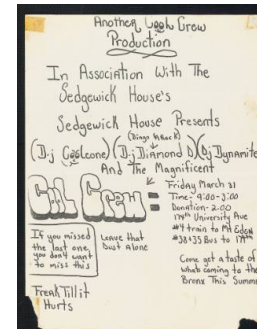 Another Cool Crew
Production
In Association With The
Sedgewick House's
Sedgewick House Presents
(Dingo is Back)
(D.j Coolcone) (D.j Diamond D) (Dj Dynamite
And The Magnificent
Cool Crew
Friday March 21
Time- 9:00-3:00
Donation- 2.00
University Ave
#4 train to Mt Eden
#38+35 Bus to
If you missed
the last one
you don't want
to miss this
Leave that
Dust Alone
Come get a taste of
whats coming to the
Bronx This Summer
Freak Till it
Hurts